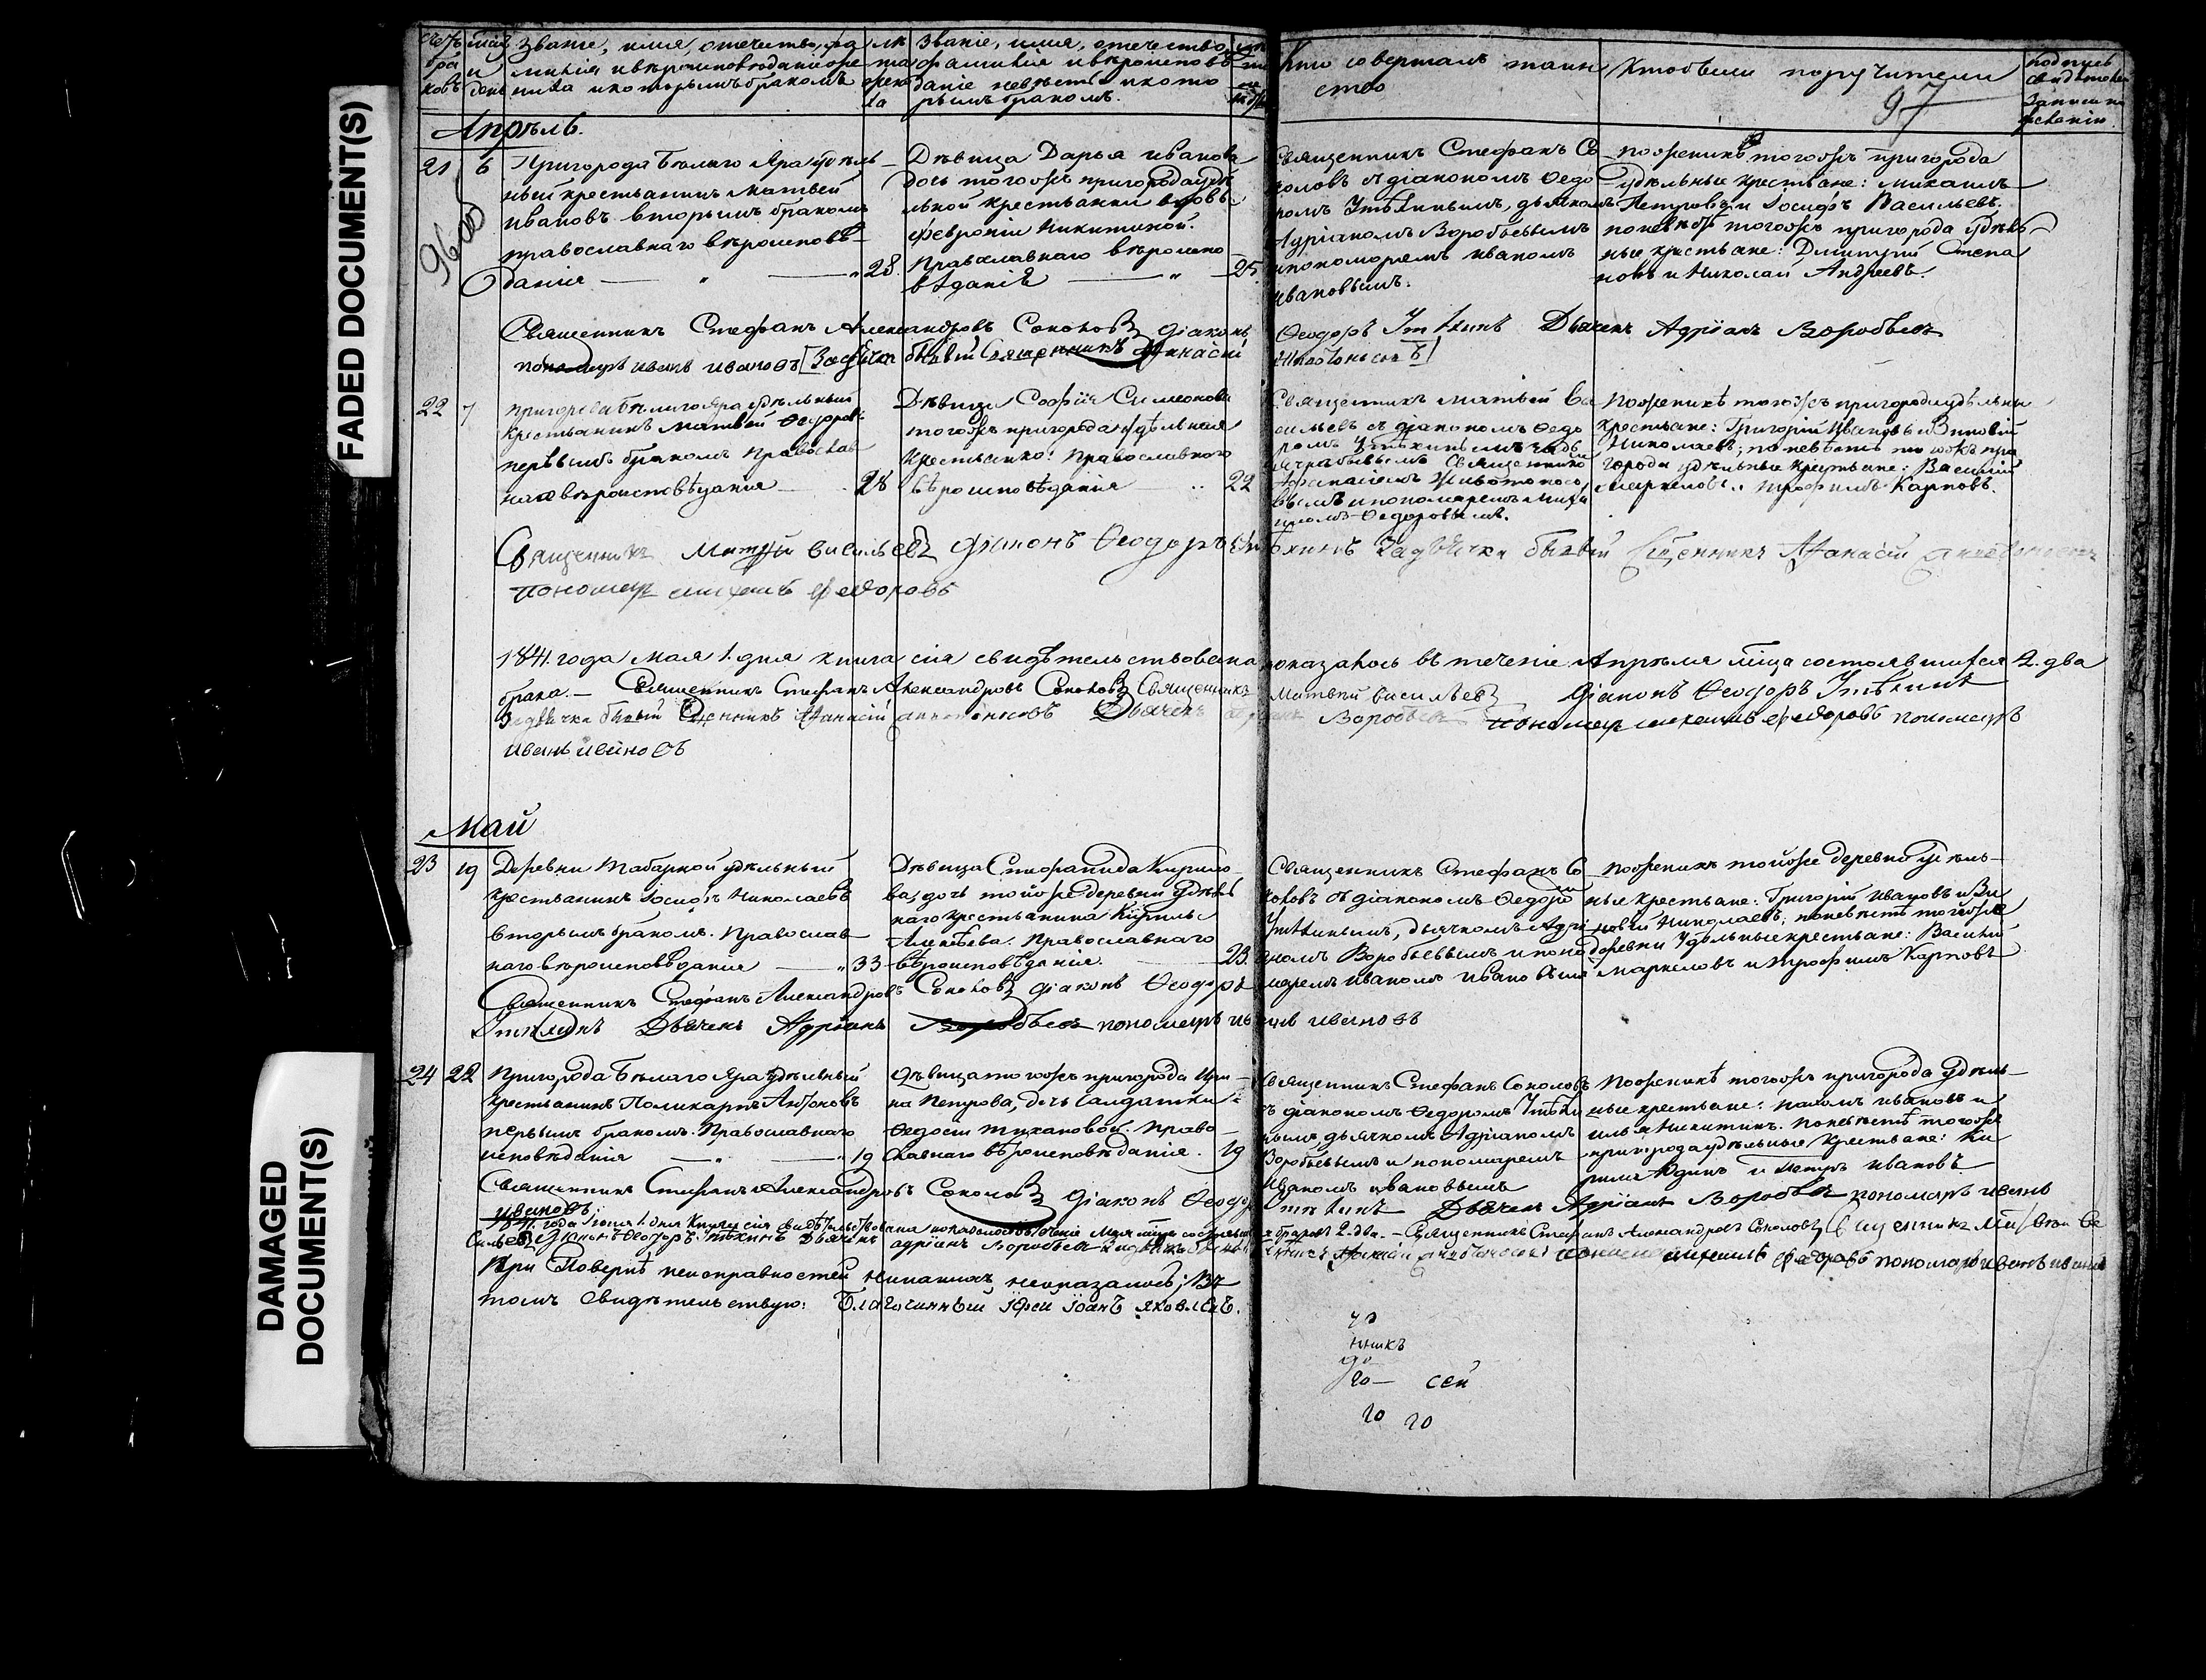 FADED DOCUMENT(S)
DAMAGED DOCUMENT(S)
званіе, имя, отчество, фа
милія и вѣроисповѣданіе же
ниха и которымъ бракомъ
званіе, имя, отчество
фамилія и вѣроисповѣ
даніе невѣсты и кото
рымъ бракомъ.
Кто совершалъ таин
ство
Кто были поручители
97
подпись
Апрѣль.
21 6
Пригорода Бѣлаго Яра удѣль
ный крестьянинъ Матвей
Ивановъ вторымъ бракомъ
православнаго вѣроисповѣ
данія 28
Дѣвица Дарья Иванова
дочь того жъ пригорода удѣ
льной крестьянки вдовы
Февроніи Никитиной.
Православнаго вѣроиспо
вѣданія 25
Священникъ Стефанъ Со
коловъ съ діакономъ Ѳедо
ромъ Утѣхинымъ, дьячкомъ
Адріаномъ Воробьевымъ
и пономаремъ Иваномъ
Ивановымъ.
по женихѣ того жъ пригорода
удѣльные крестьяне: Михаилъ
Петровъ и Іосифъ Васильевъ.
по невѣстѣ того жъ пригорода удѣль
ные крестьяне: Дмитрій Степа
новъ и Николай Андреевъ.
Священникъ Стефанъ Александровъ Соколовъ діаконъ Ѳеодоръ Утѣхинъ Дьячекъ Адріанъ Воробьевъ
пономарь Иванъ Ивановъ
22 7
Пригорода Бѣлаго Яра удѣльный
крестьянинъ Матвей Ѳедоровъ
первымъ бракомъ Православ
наго вѣроисповѣданія 28
Дѣвица Софія Симеонова
того жъ пригорода удѣльная
крестьянка. Православнаго
вѣроисповѣданія 22
Священникъ Матвей Ва
сильевъ съ діакономъ Ѳедо
ромъ Утѣхинымъ
бывшимъ Священнико
и пономаремъ Миха
иломъ Ѳедоровымъ.
По женихѣ того жъ пригорода удѣльны
крестьяне: Григорій Ивановъ и Зиновій
Николаевъ; по невѣстѣ того жъ при
города удѣльные крестьяне: Василій
Маркеловъ и Трофимъ Карповъ.
Священникъ Матвей Васильевъ діаконъ Ѳеодоръ Утѣхинъ За дьячка бывый Священникъ Аѳанасій
пономарь Михаилъ Ѳедоровъ
1841. года Мая 1. дня книга сія свидѣтельствована показалось въ теченіе Апрѣля мѣсяца состоявшихся 2. два
брака. — Священникъ Стефанъ Александровъ Соколовъ Священникъ Матвей Васильевъ Діаконъ Ѳеодоръ Утѣхинъ
За дьячка бывый Священникъ Аѳанасій Дьячекъ Воробьевъ пономарь Михаилъ Ѳедоровъ пономарь
Иванъ Ивановъ
Май
23 19
Деревни Табарной удѣльный
крестьянинъ Іосифъ Николаевъ
вторымъ бракомъ. Православ
наго вѣроисповѣданія 33
Дѣвица Степанида Кирило
ва, дочь той же деревни удѣль
наго крестьянина Кирилы
Алексѣева. Православнаго
вѣроисповѣданія. 23
Священникъ Стефанъ Со
коловъ съ діакономъ Ѳедоромъ
Утѣхинымъ, дьячкомъ Адрі
аномъ Воробьевымъ и поно
маремъ Иваномъ Ивановымъ
По женихѣ той же деревни удѣль
ные крестьяне: Григорій Ивановъ и Зи
новій Николаевъ; по невѣстѣ той же
деревни удѣльные крестьяне: Василій
Маркеловъ и Трофимъ Карповъ
Священникъ Стефанъ Александровъ Соколовъ діаконъ Ѳеодоръ
Утѣхинъ Дьячекъ Адріанъ Воробьевъ пономарь Иванъ Ивановъ
24 22
Пригорода Бѣлаго Яра удѣльный
крестьянинъ Поликарпъ Антоновъ
первымъ бракомъ. Православнаго
исповѣданія 19
Дѣвица того жъ пригорода Ири
на Петрова, дочь солдатки
Ѳедосьи Тихановой. Право
славнаго вѣроисповѣданія. 19
Священникъ Стефанъ Соколовъ
съ діакономъ Ѳедоромъ Утѣхи
нымъ дьячкомъ Адріаномъ
Воробьевымъ и пономаремъ
Иваномъ Ивановымъ
По женихѣ того жъ пригорода удѣль
ные крестьяне: Пахомъ Ивановъ и
Илья Никитинъ. По невѣстѣ того жъ
пригорода удѣльные крестьяне: Ки
рила Юдинъ и Петръ Ивановъ
Священникъ Стефанъ Александровъ Соколовъ діаконъ Ѳеодоръ Утѣхинъ Дьячекъ Адріанъ Воробьевъ пономарь Иванъ
Ивановъ
1841. года Іюня 1. дня книга сія свидѣтельствована браковъ 2. два. — Священникъ Стефанъ Александровъ Соколовъ Священникъ Матвей Ва
сильевъ Діаконъ Ѳеодоръ Утѣхинъ Дьячекъ Адріанъ Воробьевъ Михаилъ Ѳедоровъ пономарь Иванъ Ивановъ
При Повѣркѣ неисправностей никакихъ неоказалось; въ
томъ свидѣтельствую: Благочинный Іерей Іоаннъ Яковлевъ.
сей
го го